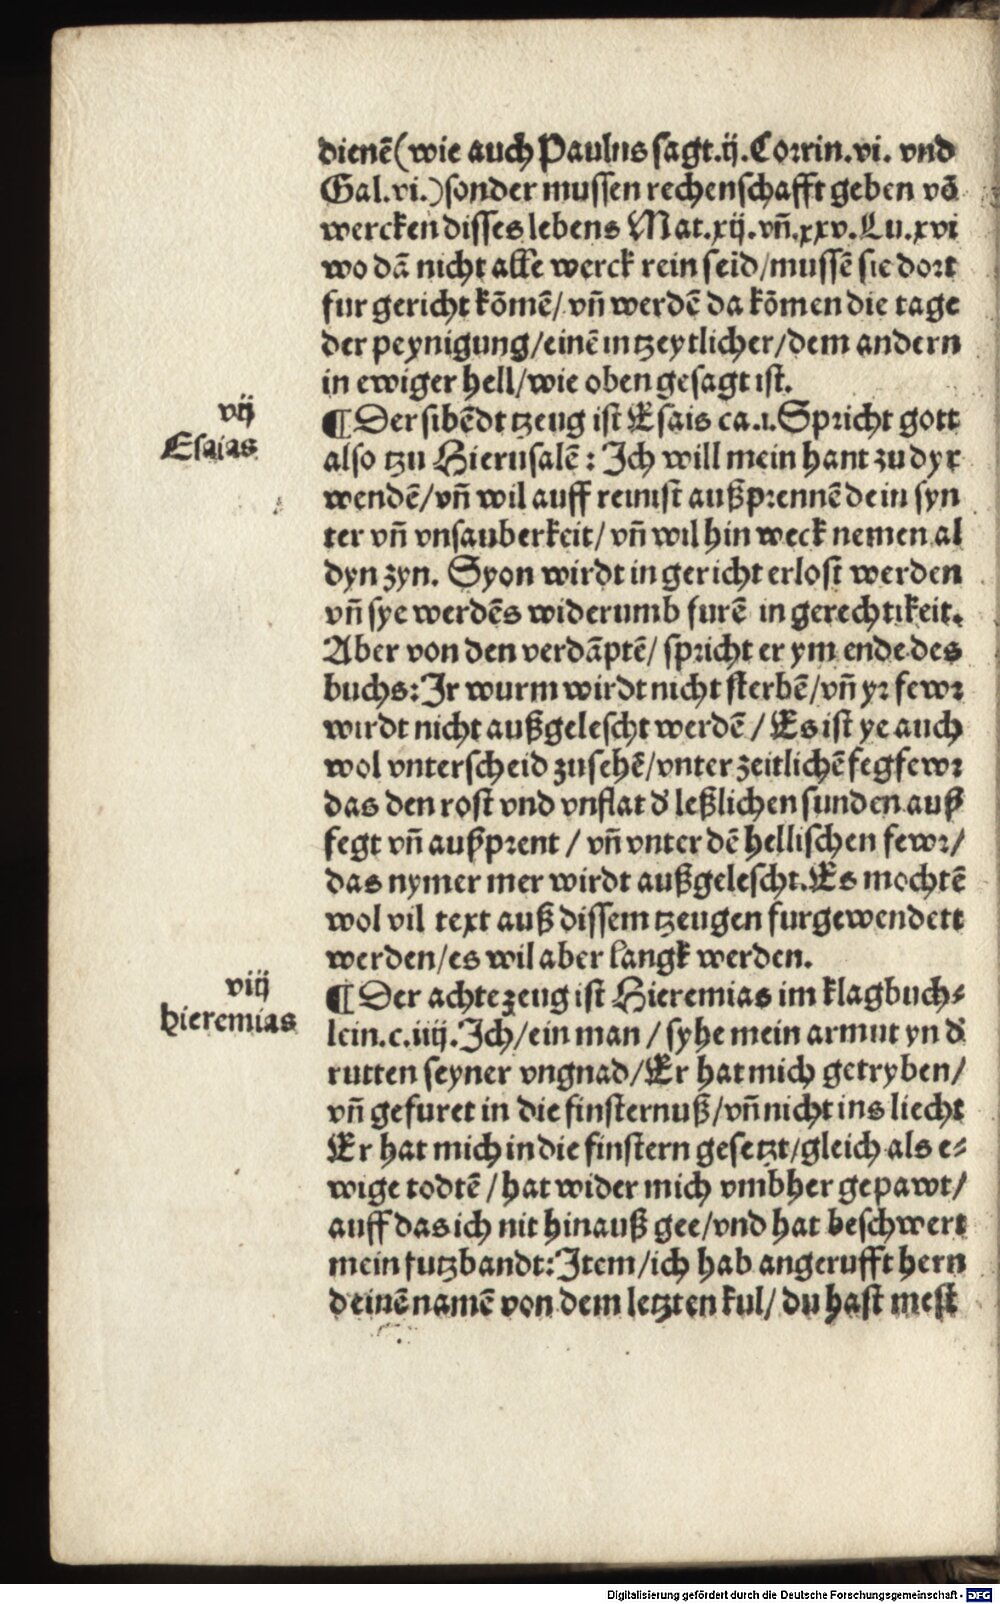 dienē (wie auch Paulus sagt. ij. Corrin. vi. vnd
Gal. vi.) sonder mussen rechenschafft geben vō
wercken disses lebens Mat. xij. vñ. xxv. Lu. xvi
wo dā nicht alle werck rein seid / mussē sie dort
fur gericht kōmē / vñ werdē da kōmen die tage
der peynigung / einē in tzeytlicher / dem andern
in ewiger hell / wie oben gesagt ist.
vij
Esaias
¶ Der sibēdt tzeug ist Esais ca. 1. Spricht gott
also tzu Hierusalē: Ich will mein hant zu dyr
wendē / vñ wil auff reinist außprennē dein syn
ter vñ vnsauberkeit / vñ wil hin weck nemen al
dyn zyn. Syon wirdt in gericht erlost werden
vñ sye werdēs widerumb furē in gerechtikeit.
Aber von den verdāptē / spricht er ym ende des
buchs: Ir wurm wirdt nicht sterbē / vñ yr fewr
wirdt nicht außgelescht werdē / Es ist ye auch
wol vnterscheid zusehē / vnter zeitlichē fegfewr
das den rost vnd vnflat d' leßlichen sunden auß
fegt vñ außprent / vñ vnter dē hellischen fewr /
das nymer mer wirdt außgelescht. Es mochtē
wol vil text auß dissem tzeugen furgewendett
werden / es wil aber langk werden.
viij
hieremias
¶ Der achte zeug ist Hieremias im klagbuch⸗
lein. c. iiij. Ich / ein man / syhe mein armut yn d'
rutten seyner vngnad / Er hat mich getryben /
vñ gefuret in die finsternuß / vñ nicht ins liecht
Er hat mich in die finstern gesetzt / gleich als e⸗
wige todtē / hat wider mich vmbher gepawt /
auff das ich nit hinauß gee / vnd hat beschwert
mein futzbandt: Item / ich hab angerufft hern
deinē namē von dem letzten kul / du hast mest
Digitalisierung gefördert durch die Deutsche Forschungsgemeinschaft - DFG